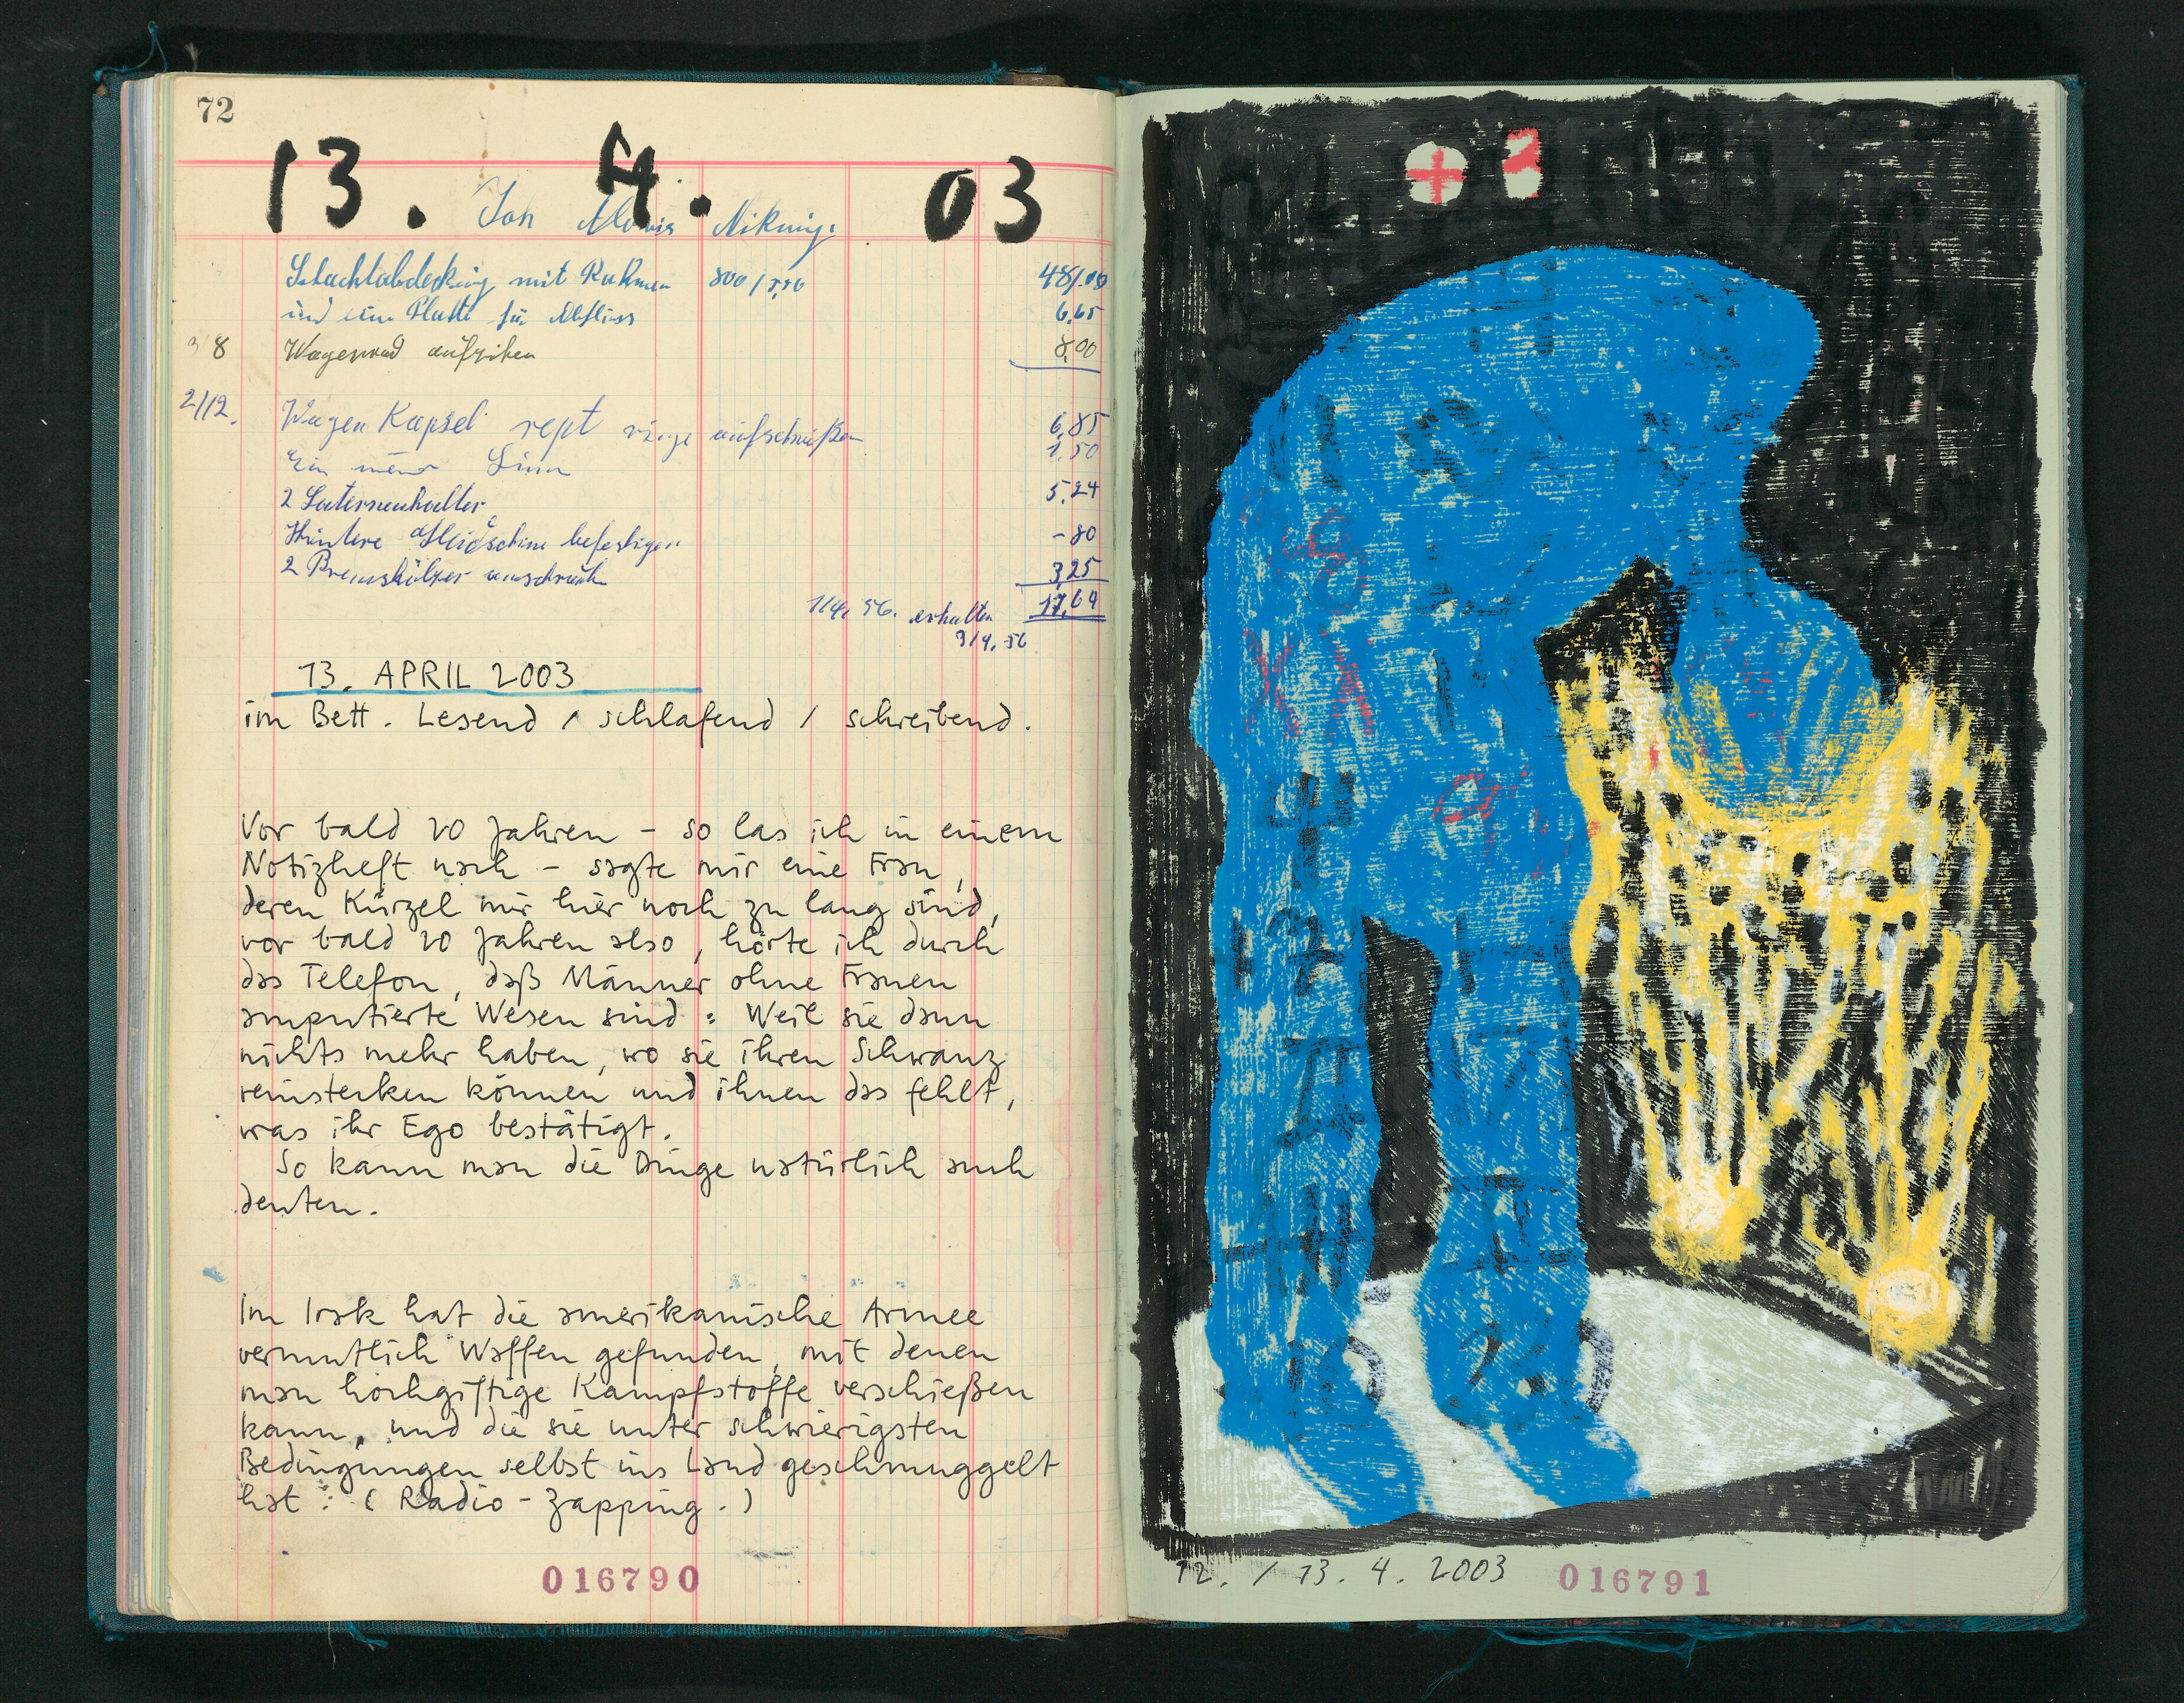 72
13. 4. 03
Joh Alois
mit Rahmen 800 /
48/.00
und eine Platte für Abfluss
6,65
8 Wagenrad aufziehen
8,00
2/12. Wagen Kapsel rept ringe
6,85
Ein
1,50
2 Laternenhalter
5,24
Hintere befestigen
-80
2 Bremsklötzer
3,25
1/4, 56. erhalten 17,64
3/4. 56
13. APRIL 2003
im Bett. Lesend / schlafend / schreibend.
Vor bald 20 Jahren – so las ich in einem
Notizheft nach – sagte mir eine Frau,
deren Kürzel mir hier noch zu lang sind,
vor bald 20 Jahren also, hörte ich durch
das Telefon, daß Männer ohne Frauen
amputierte Wesen sind: Weil sie dann
nichts mehr haben, wo sie ihren Schwanz
reinstecken können und ihnen das fehlt,
was ihr Ego bestätigt.
So kann man die Dinge natürlich auch
deuten.
Im Irak hat die amerikanische Armee
vermutlich Waffen gefunden, mit denen
man hochgiftige Kampfstoffe verschießen
kann, und die sie unter schwierigsten
Bedingungen selbst ins Land geschmuggelt
hat. (Radio-Zapping.)
016790
12. / 13. 4. 2003
016791